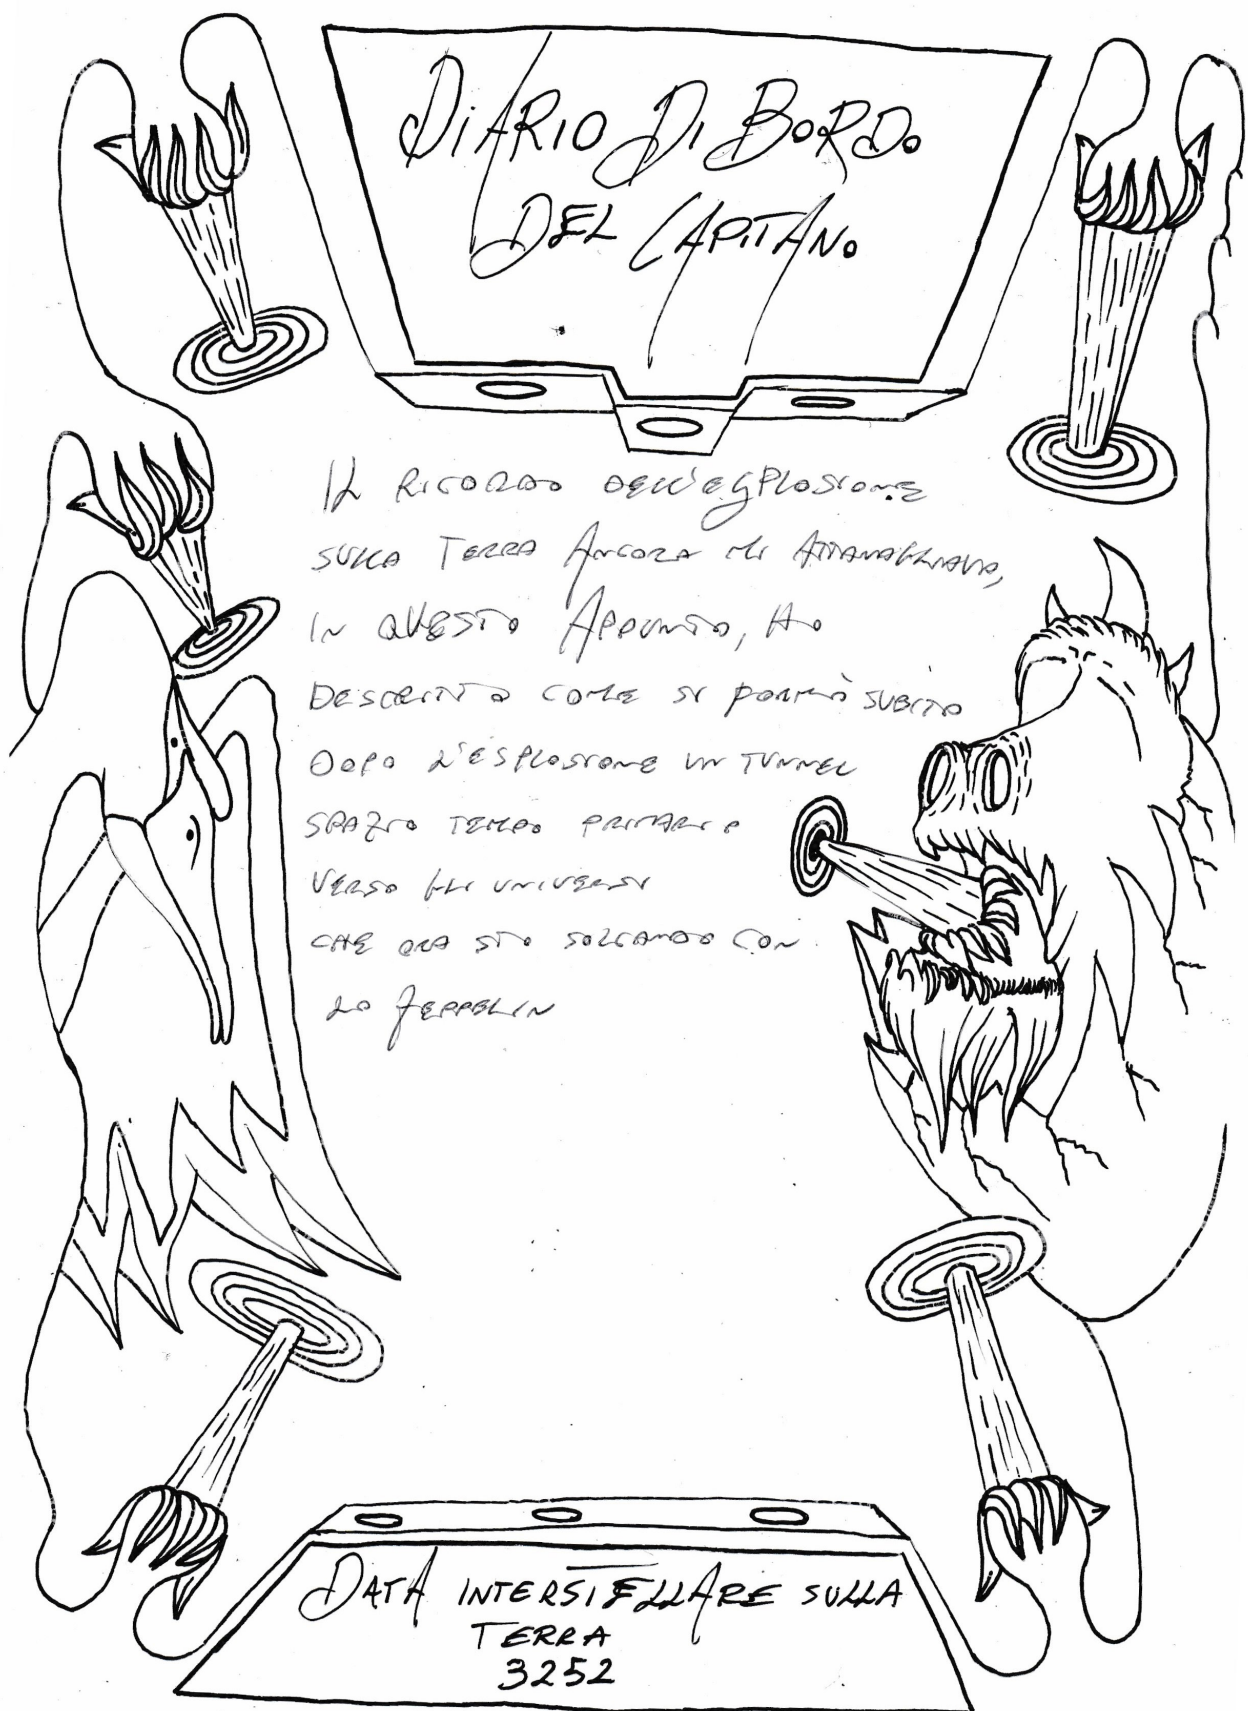 DIARIO DI BORDO
DEL CAPITANO
IL RICORDO DELL'ESPLOSIONE
SULLA TERRA ANCORA MI ATTANAGLIAVA,
IN QUESTO APPUNTO, HO
DESCRITTO COME SI FORMÒ SUBITO
DOPO L'ESPLOSIONE UN TUNNEL
SPAZIO TEMPO PRIMARIO
VERSO GLI UNIVERSI
CHE ORA STO SOLCANDO CON
LO ZEPPELIN
DATA INTERSTELLARE SULLA
TERRA
3252